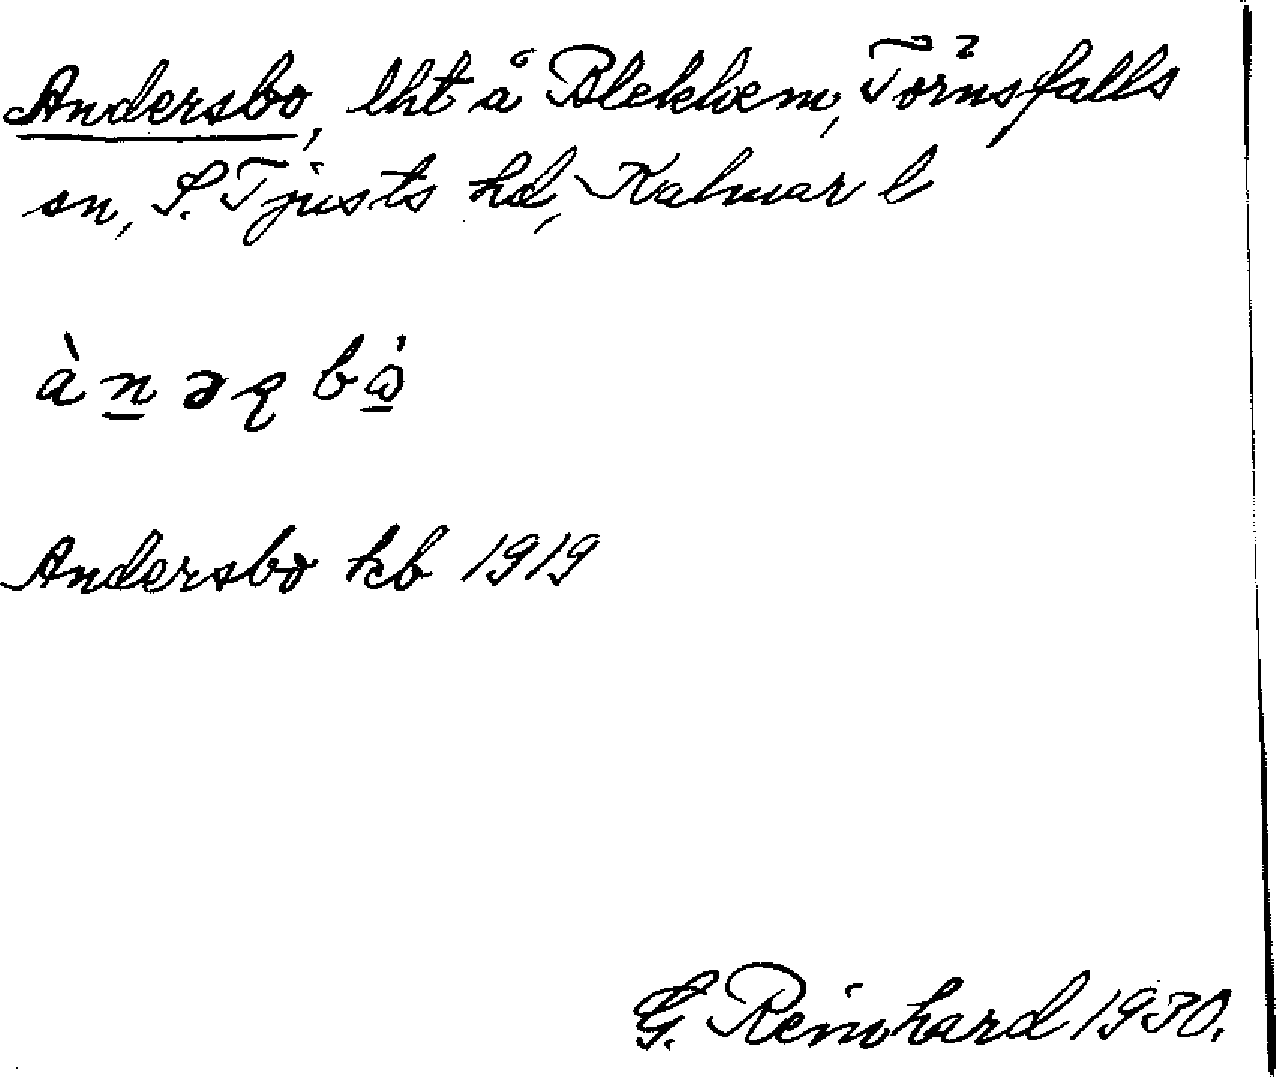 Andersbo, lht å Blekhem, Törnsfalls
sn, S. Tjusts hd, Kalmar l
Andersbo kb 1919
G. Reinhard 1930.